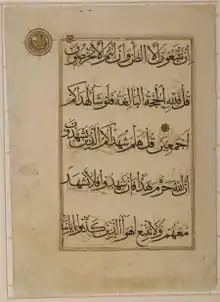 إن تتبعون إلا الظن وإن أنتم إلا تخرصون
قل فلله الحجة البالغة فلو شاء لهداكم
أجمعين قل هلم شهداءكم الذين يشهدون
أن الله حرم هذا فإن شهدوا فلا تشهد
معهم ولا تتبع أهواء الذين كذبوا بآياتنا